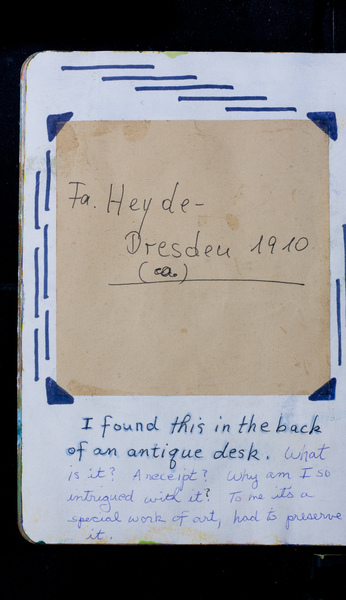 Fa. Heyde-
Dresden 1910
(ca.)
I found this in the back
of an antique desk. What
is it? A receipt? Why am I so
intrigued with it? To me it's a
special work of art, had to preserve
it.